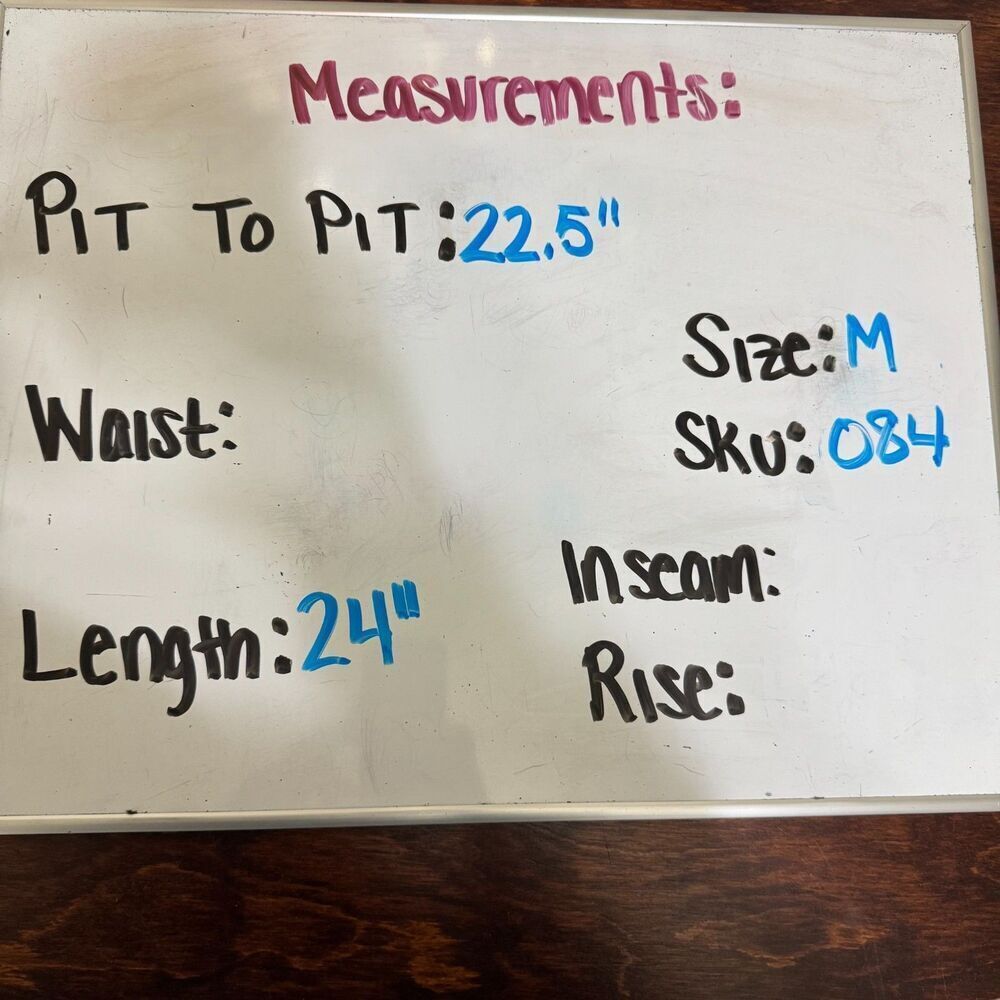 Measurements:
PIT TO PIT: 22.5"
Size: M
Waist:
SKU: 084
Inseam:
Length: 24"
Rise: